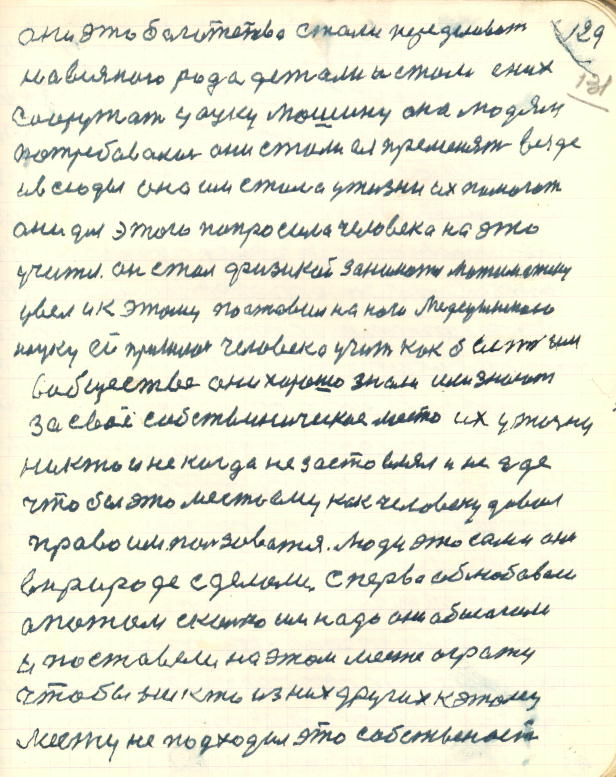 129
131
они это богатство стали переделоват
на всякого рода детали и стали с них
сооружат у ауку мошину она людям
потребавалас они стали ея пременят везде
и всюды она им стала у жизни их помогат
они для этого попросила человека на это
учится. он стал физикой заниматся матиматику
увел и к этому поставил на ноги Медецинскою
науку ей пришлос человека учит как быт им
вобществе они хорошо знали или знают
за своё собственическое место их у жизни
никто и не когда не застовлял и не где
что бы это место ему как человеку давал
право им ползоватся. люди это сами они
в природе сделали. Сперва облюбавали
а потом сколко им надо они абмогили
и поставели на этом месте агражу
чтобы никто из них других к этому
месту не подходил это собственост